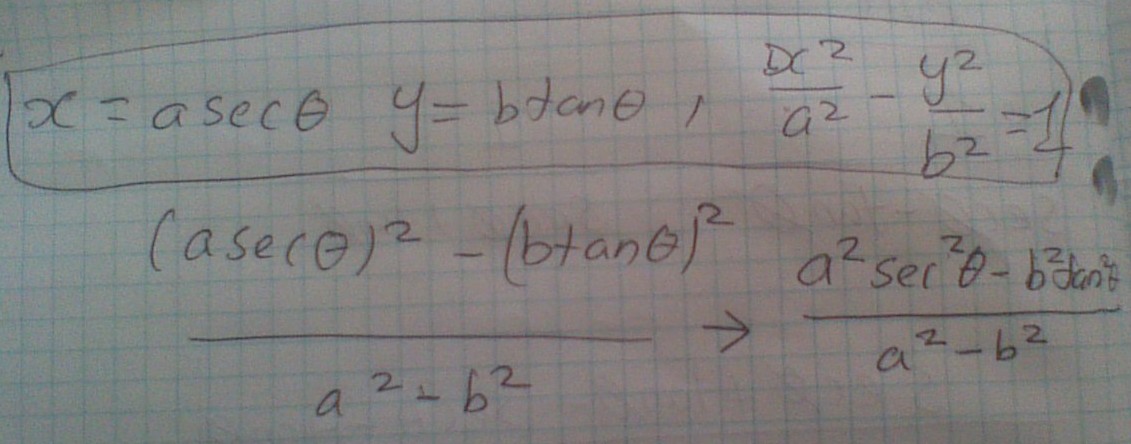 x = a secθ y = b tanθ, x²/a² - y²/b² = 1
(a secθ)² - (b tanθ)² / a² - b² → a² sec²θ - b² tan²θ / a² - b²